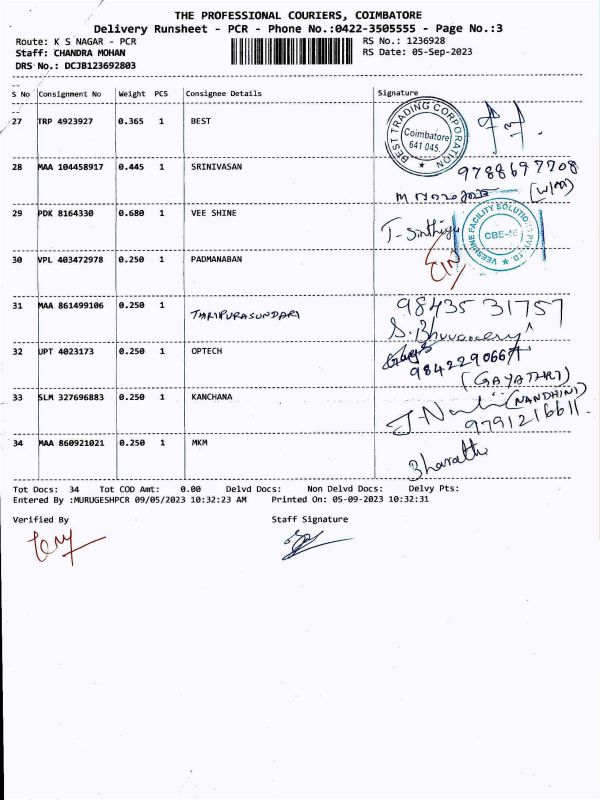 THE PROFESSIONAL COURIERS, COIMBATORE
Delivery Runsheet - PCR - Phone No.:0422-3505555 - Page No.:3
Route: K S NAGAR - PCR RS No.: 1236928
Staff: CHANDRA MOHAN RS Date: 05-Sep-2023
DRS No.: DCJB123692803
S No Consignment No Weight PCS Consignee Details Signature
27 TRP 4923927 0.365 1 BEST
BEST TRADING CORPORATION
Coimbatore
641 045.
28 MAA 104458917 0.445 1 SRINIVASAN 9788697708
(W/M)
29 PDK 8164330 0.680 1 VEE SHINE
VEESHINE FACILITY SOLUTIONS PVT. LTD.
CBE-45
30 VPL 403472978 0.250 1 PADMANABAN
31 MAA 861499106 0.250 1 THRIPURASUNDARI 98435 31757
S. Bhuvaneswary
32 UPT 4023173 0.250 1 OPTECH
(GAYATHRI)
33 SLM 327696883 0.250 1 KANCHANA (NANDHINI)
9791216611.
34 MAA 860921021 0.250 1 MKM Bharathi
Tot Docs: 34 Tot COD Amt: 0.00 Delvd Docs: Non Delvd Docs: Delvy Pts:
Entered By :MURUGESHPCR 09/05/2023 10:32:23 AM Printed On: 05-09-2023 10:32:31
Verified By Staff Signature